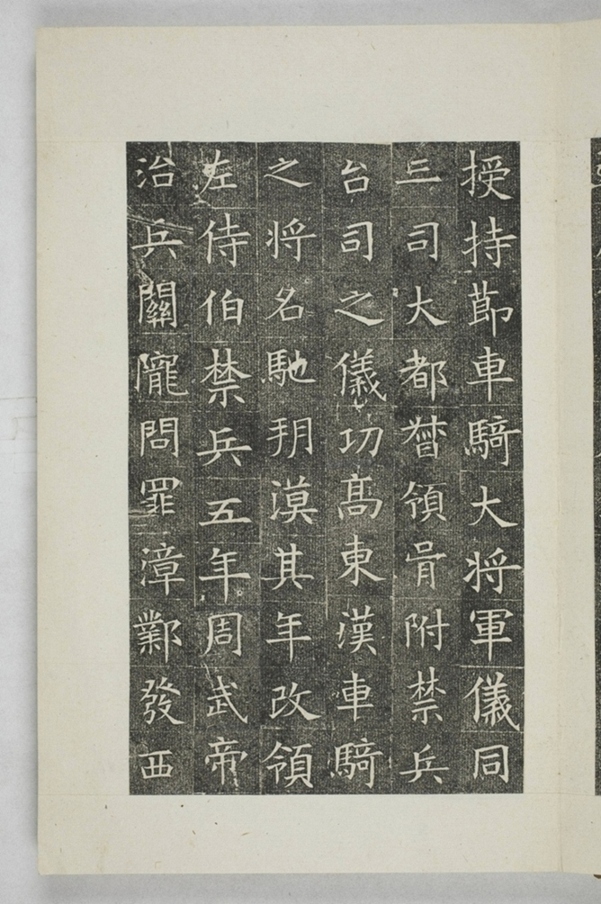 授持節車騎大将軍儀同
三司大都督領骨附禁兵
台司之儀功髙東漢車騎
之将名馳朔漠其年改領
左侍伯禁兵五年周武帝
治兵關隴問罪漳鄴發西